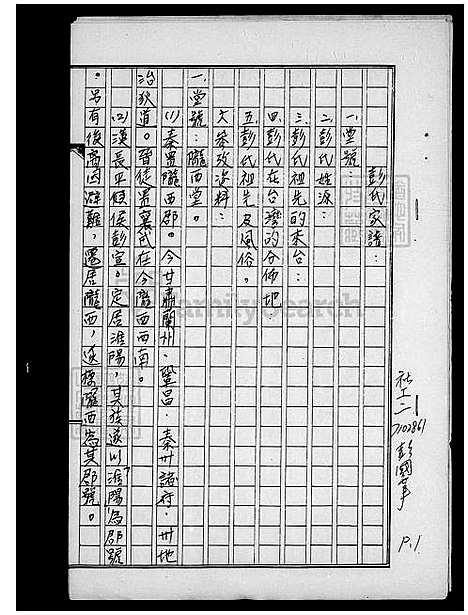 彭氏家譜：
一、堂號：
二、彭氏姓源：
三、彭氏祖先的來台：
四、彭氏在台灣的分佈地：
五、彭氏祖先及風俗。
六、參攷資料：
一、堂號：隴西堂。
(1) 秦置隴西郡。今甘肅蘭州、鞏昌、秦州諸府、州地
治狄道。晉徙青襄武在今隴西西南。
(2) 漢長平候侯彭宣。定居淮陽，其族遂以「淮陽」為郡號
。另有後裔因避難，遷居隴西，遂標隴西為其郡號。
社工二
7102861 彭國華
P.1
FamilySearch